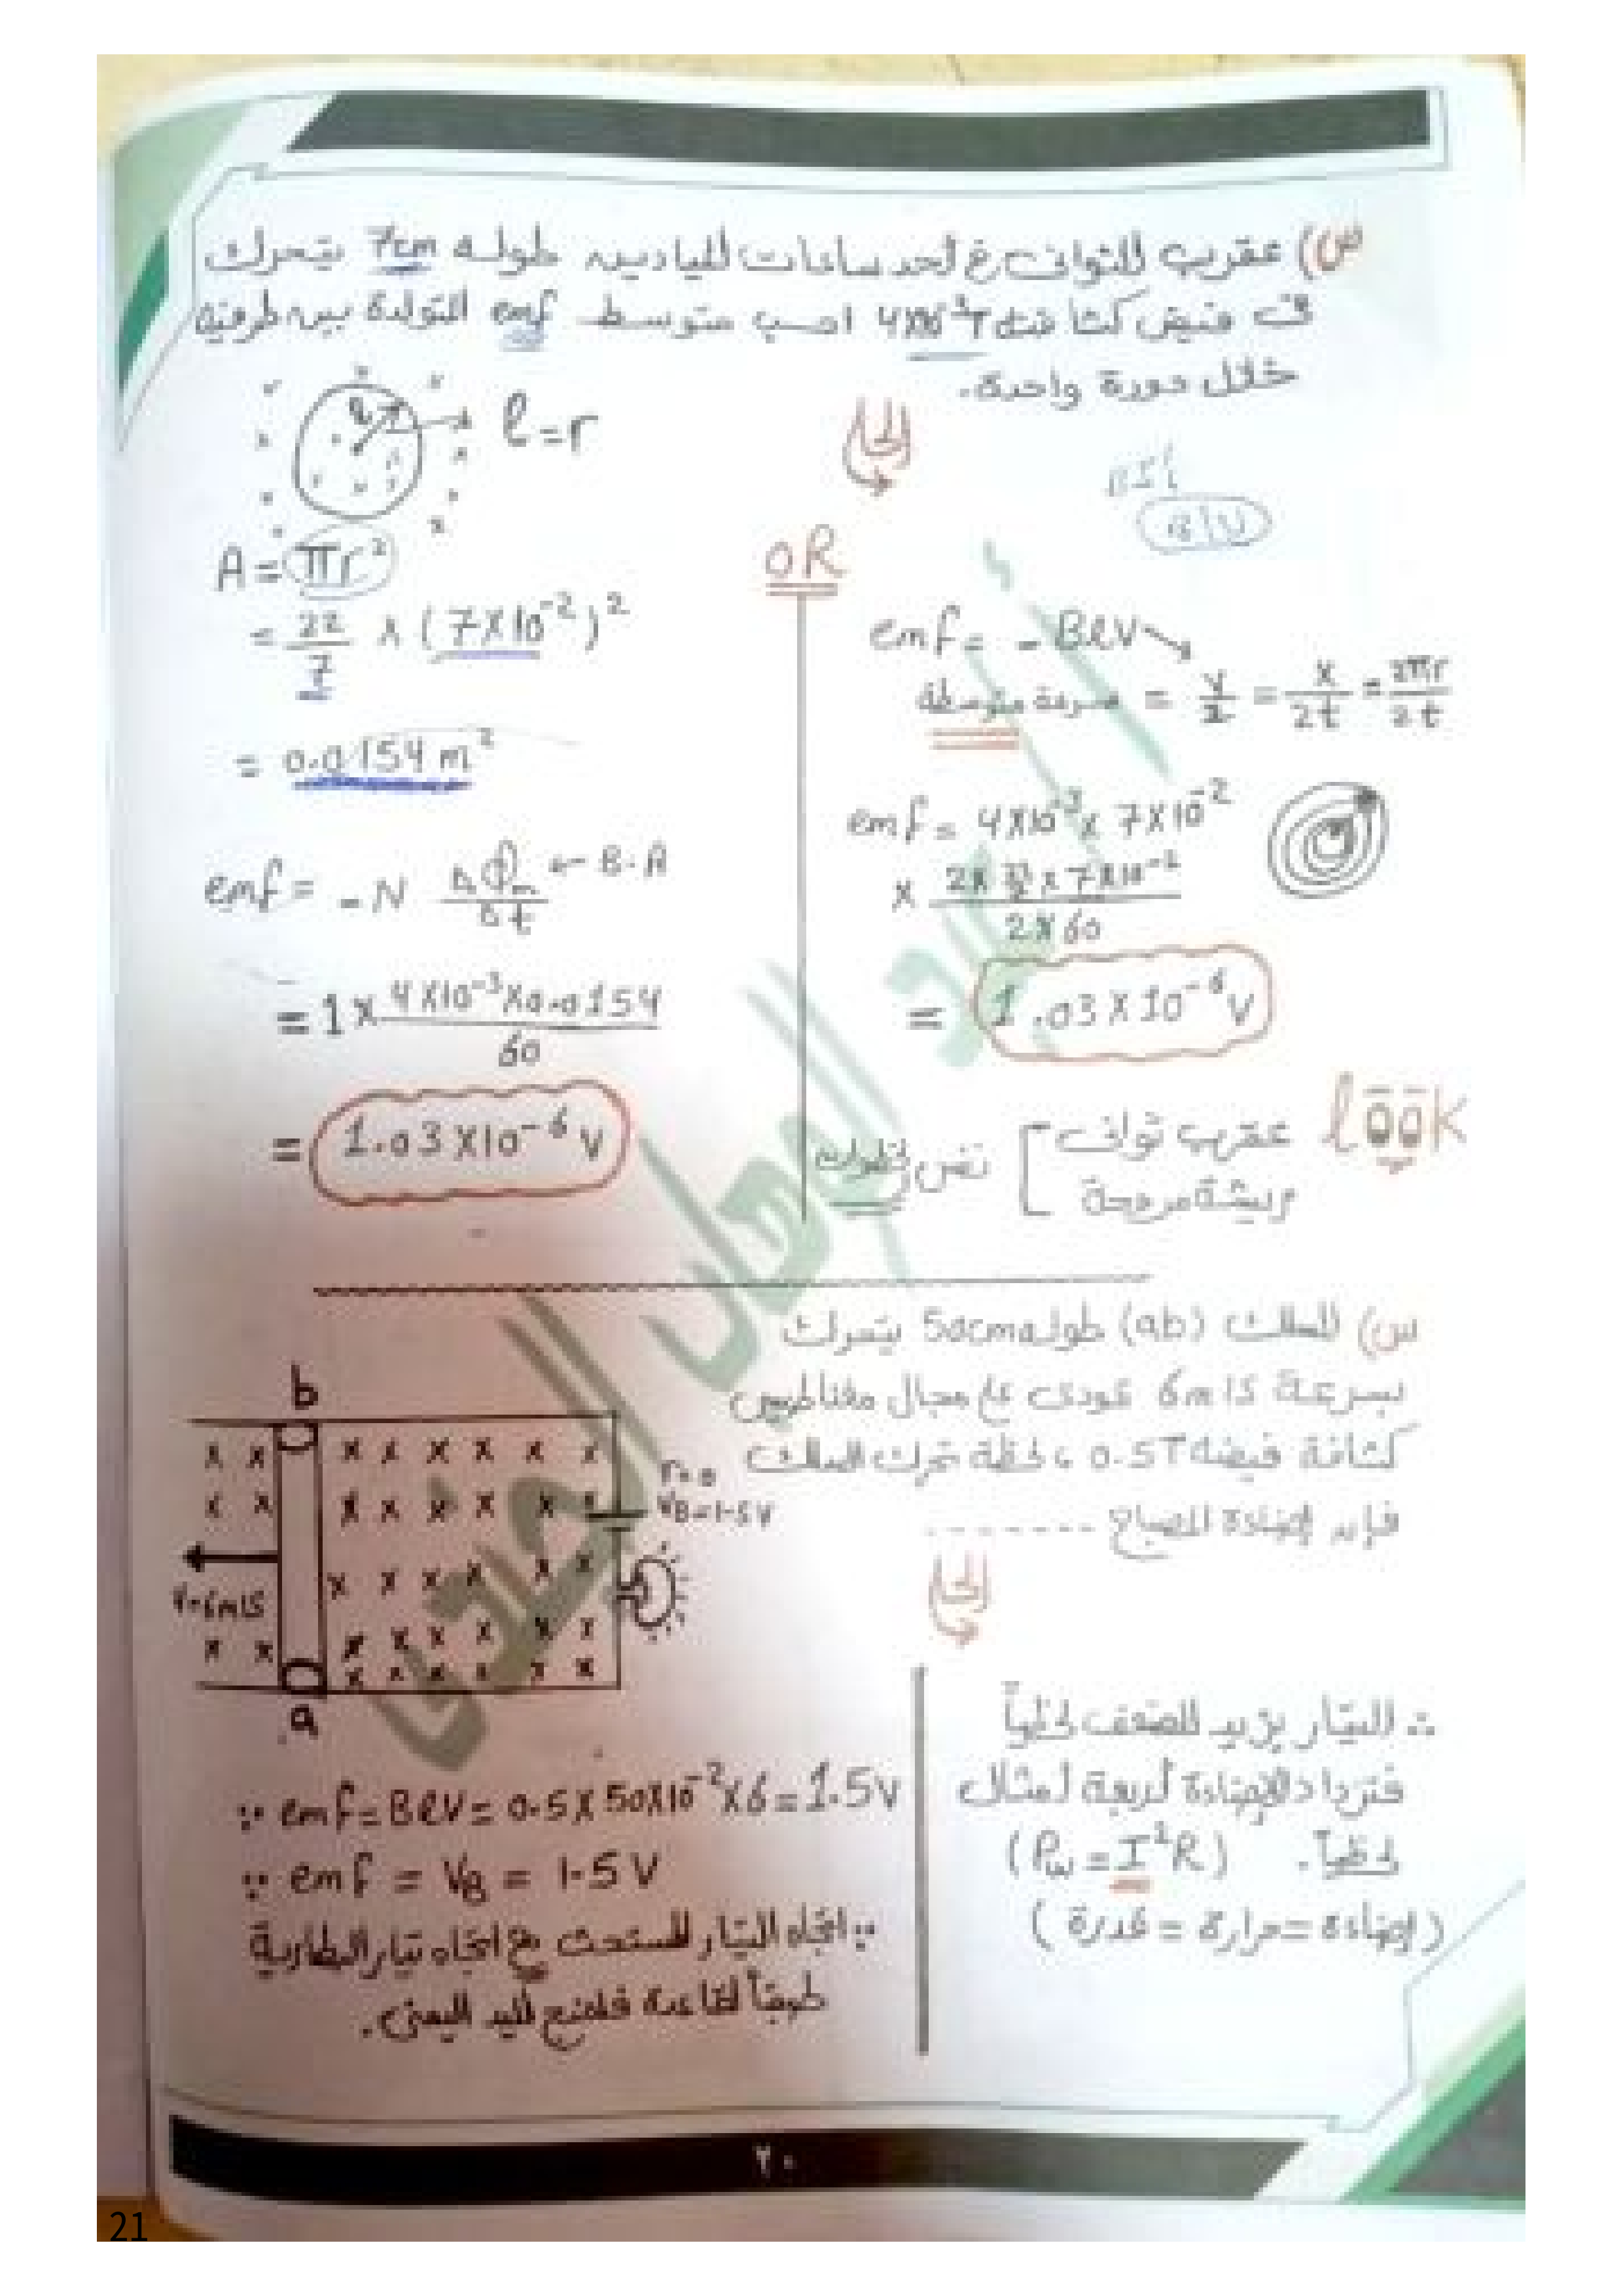 س) عقرب الثوانى فى احد ساعات الميادين طوله 7cm يتحرك
فى فيض كثافته 4X10⁻³T احسب متوسط emf المتولدة بين طرفيه
خلال دورة واحدة.
الحل
l = r
A = πr²
= 22/7 x (7X10⁻²)²
= 0.0154 m²
emf = - N ΔΦm/Δt ← B.A
= 1 x 4X10⁻³X0.0154/60
= 1.03X10⁻⁶ V
OR
BIL
BLV
emf = - BlV
سرعة متوسطة = V/2 = x/2t = 2πr/2t
emf = 4X10⁻³ x 7X10⁻²
x 2x 22/7 x 7X10⁻²/2X60
= 1.03X10⁻⁶ V
lööK
عقرب ثوانى
مريشة مروحة
نفس الخطوات
س) السلك (ab) طوله 50cm يتحرك
بسرعة 6m/s عمودى على مجال مغناطيسى
كثافة فيضه 0.5T، لحظة تحرك السلك
فإن إضاءة المصباح -------
b
r=0
VB=1.5V
V=6m/s
a
الحل
∵ emf = BlV = 0.5X50X10⁻²X6 = 1.5V
∵ emf = VB = 1.5 V
∵ اتجاه التيار المستحث مع اتجاه تيار البطارية
طبقاً لقاعدة فلمنج لليد اليمنى.
∴ التيار يزيد للضعف لحظياً
فتزداد الإضاءة أربعة أمثال
لحظياً. (Pw = I²R)
(إضاءة = حرارة = قدرة)
٢٠
21